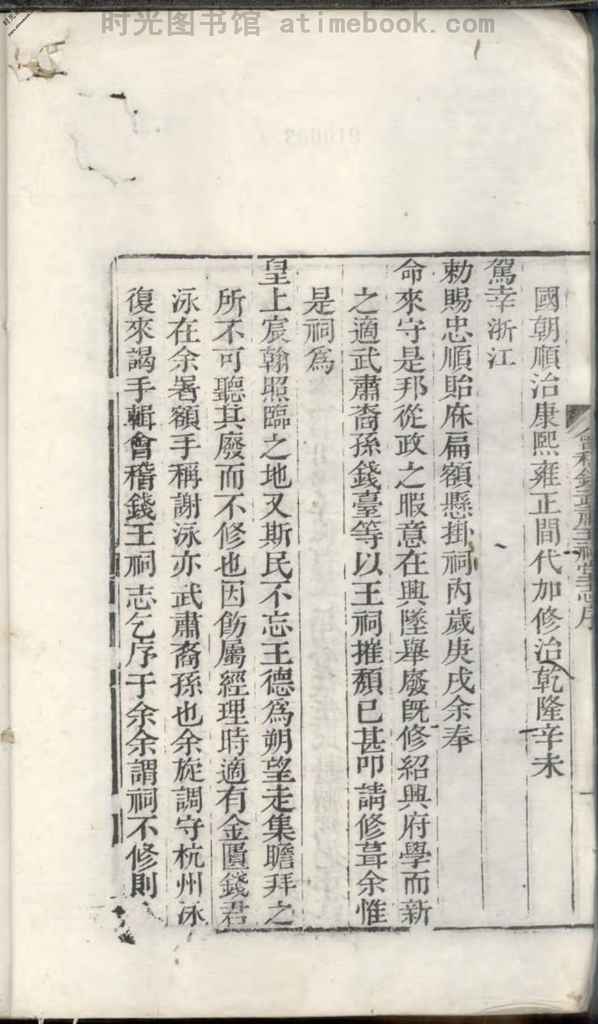 时光图书馆 atimebook.com
國朝順治康熙雍正間代加修治乾隆辛未
駕幸浙江
勅賜忠順貽庥扁額懸掛祠內歲庚戌余奉
命來守是邦從政之暇意在興墜舉廢旣修紹興府學而新
之適武肅裔孫錢臺等以王祠摧頹已甚叩請修葺余惟
是祠爲
皇上宸翰照臨之地又斯民不忘王德爲朔望走集瞻拜之
所不可聽其廢而不修也因飭屬經理時適有金匱錢君
泳在余署額手稱謝泳亦武肅裔孫也余旋調守杭州泳
復來謁手輯會稽錢王祠志乞序于余余謂祠不修則